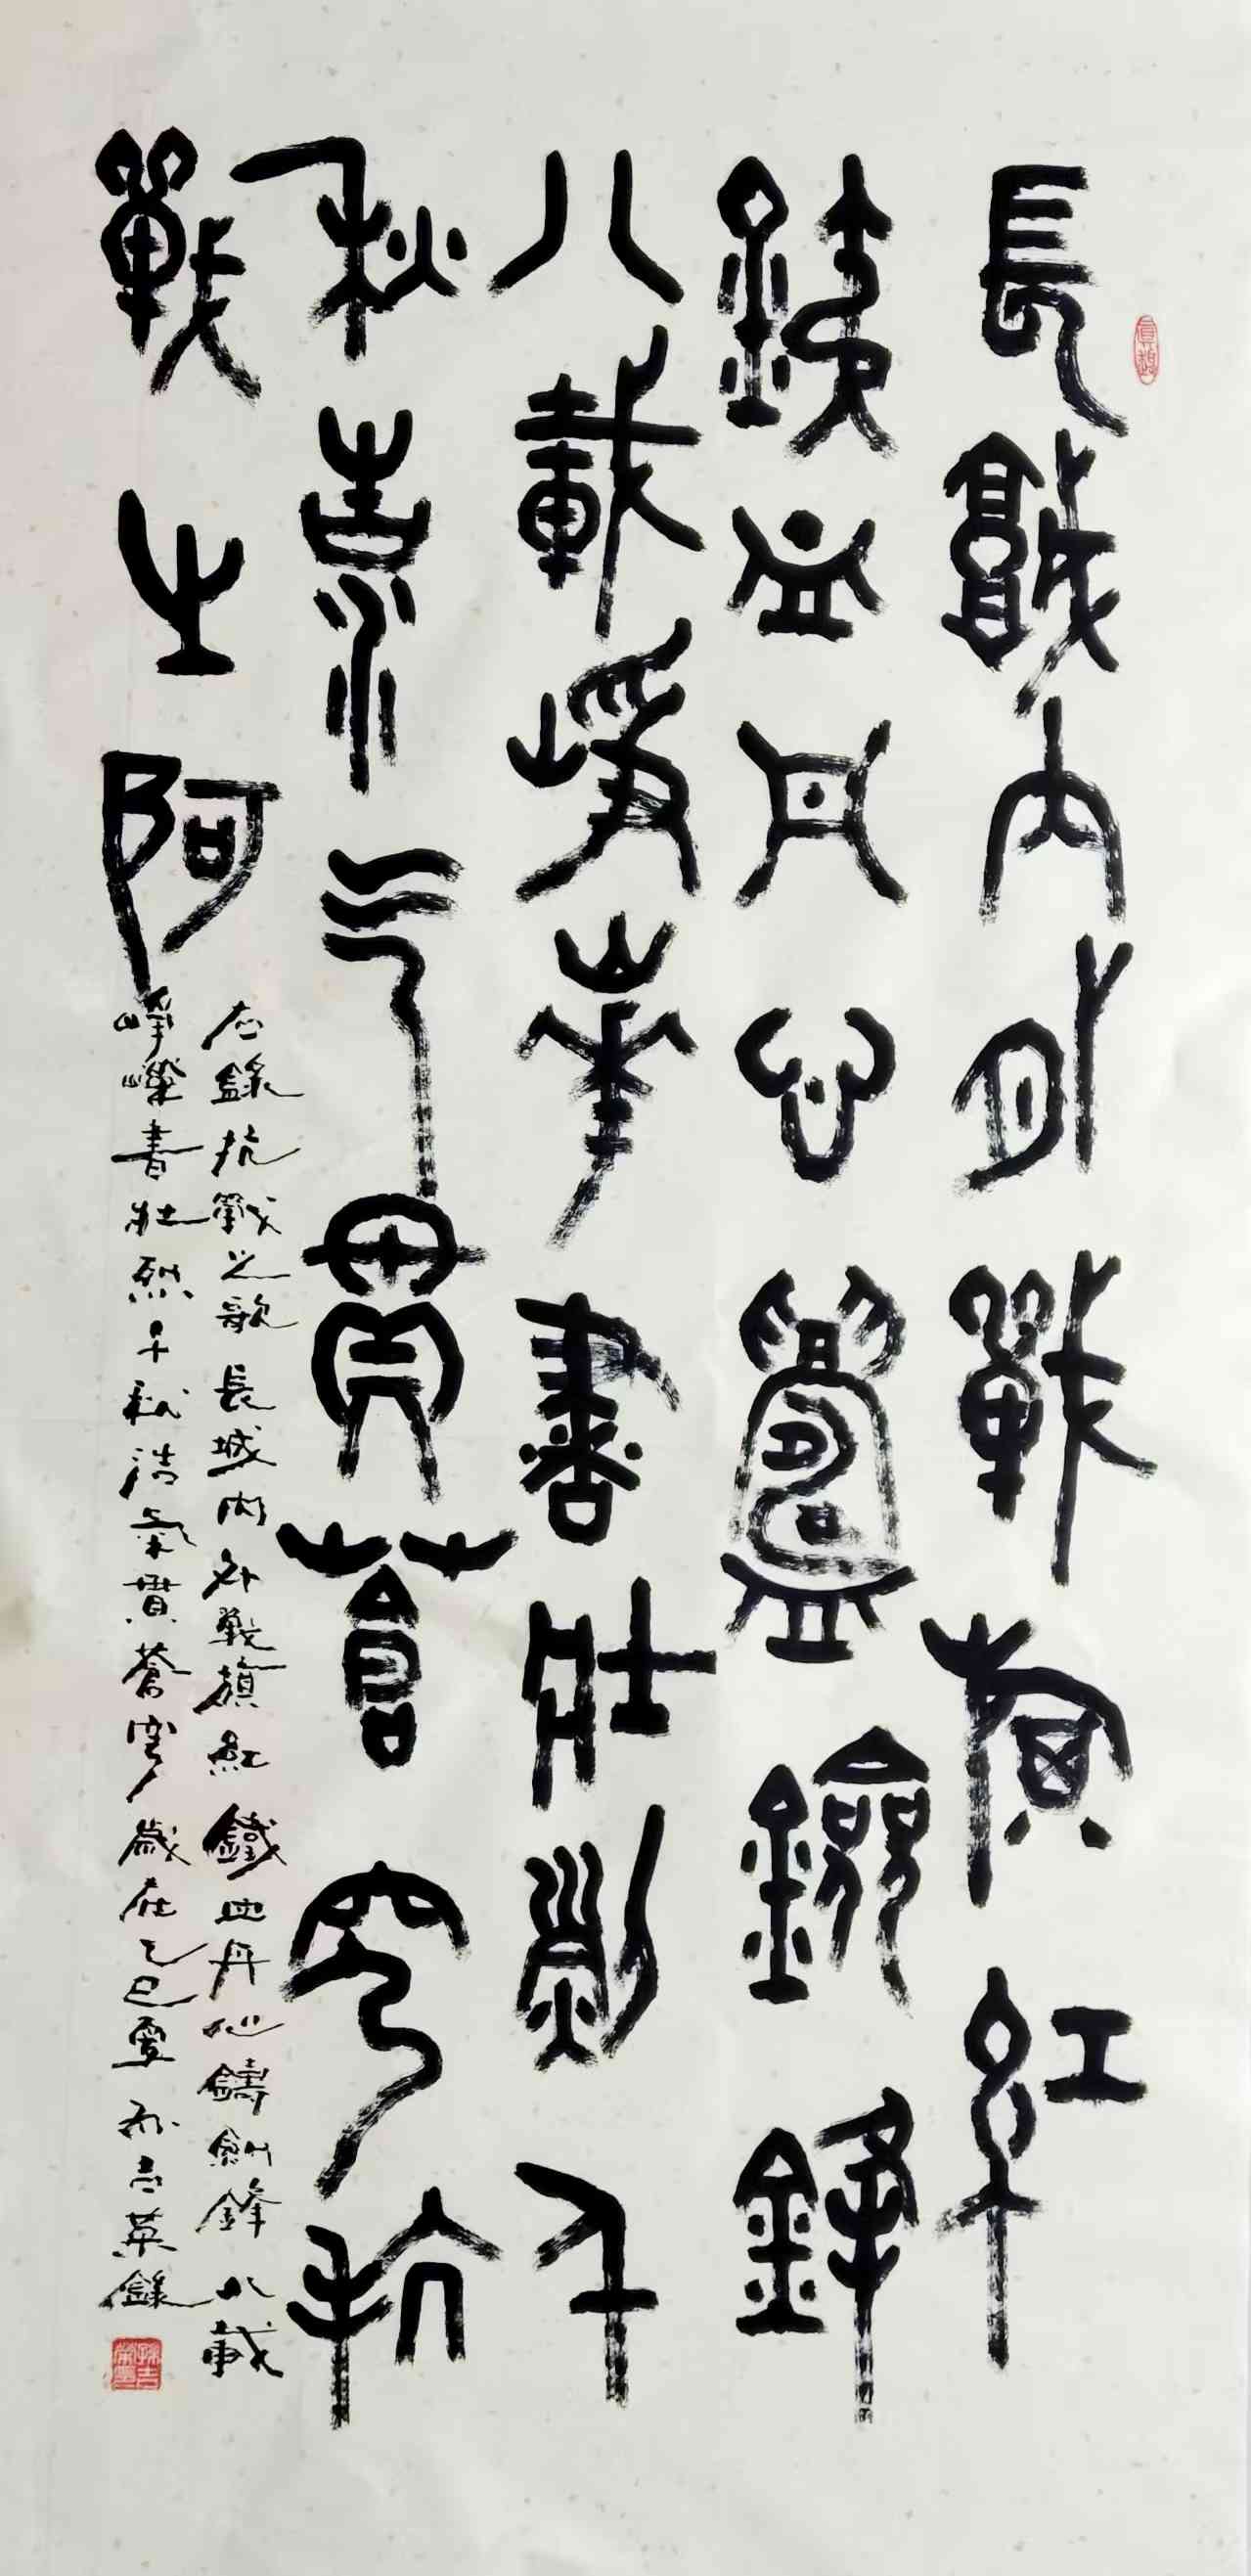 長城内外戰旗紅
鐵血丹心鑄劍鋒
八載崢嶸書壯烈千
秋浩气貫蒼穹抗
戰之歌
右錄抗戰之歌長城内外戰旗紅鐵血丹心鑄劍鋒八載
崢嶸書壯烈千秋浩氣貫蒼穹歲在乙巳夏孫吉英錄